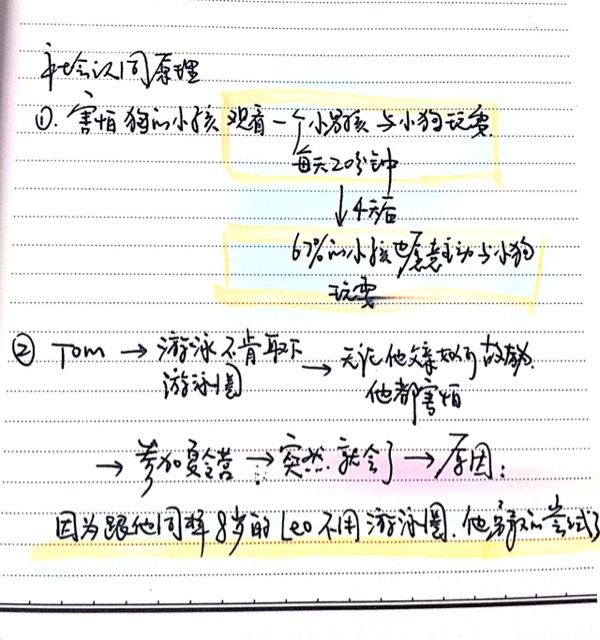 社会认同原理
①. 害怕狗的小孩 观看一个小男孩与小狗玩耍.
每天20分钟
↓4天后
67%的小孩也愿意主动与小狗
玩耍
② Tom → 游泳不肯取下 → 无论他父亲如何
游泳圈 他都害怕
→ 参加夏令营 → 突然就会了 → 原因:
因为跟他同样8岁的Leo不用游泳圈. 他 尝试了